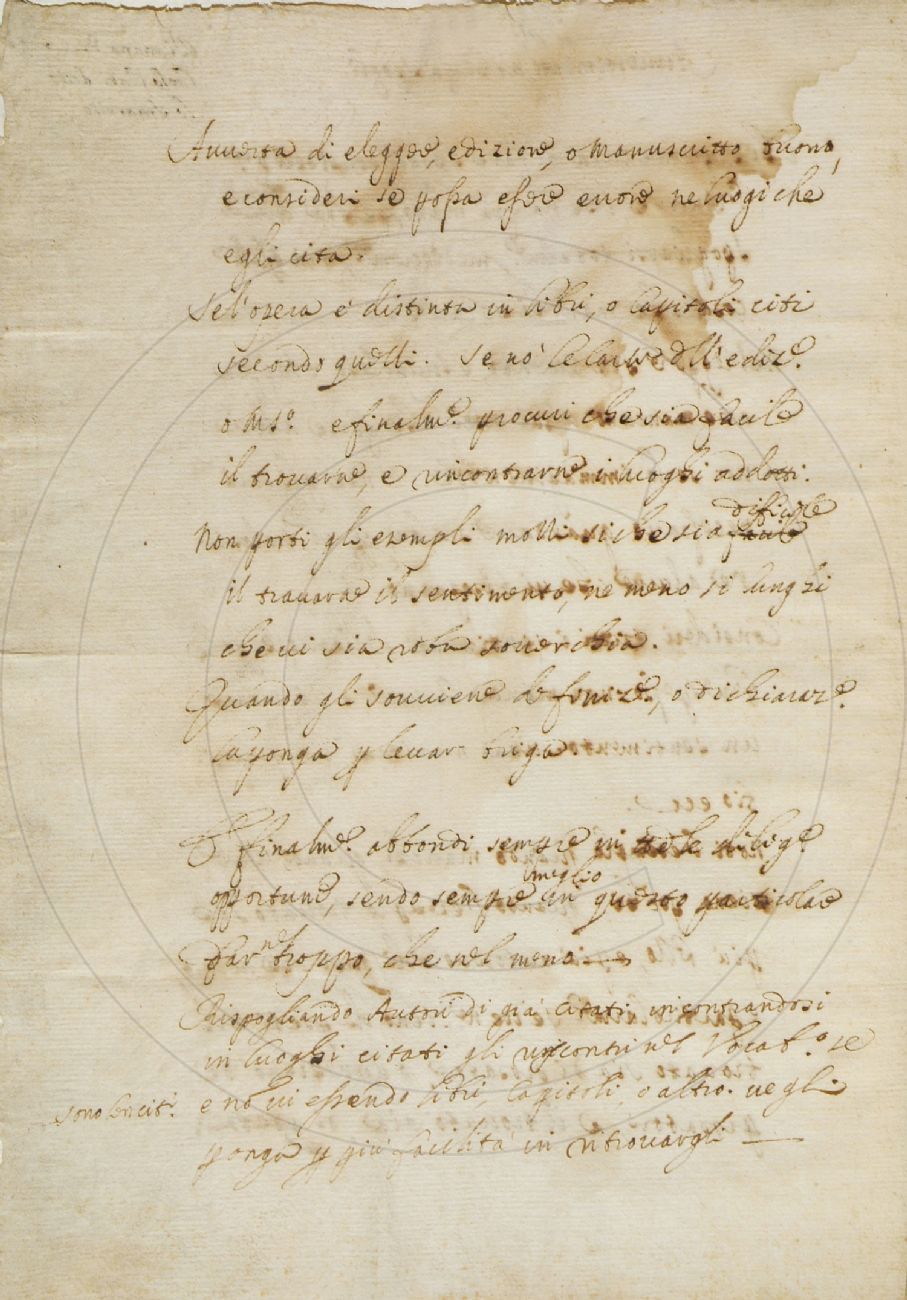 Auuerta di eleggere, edizione, o manuscritto buono,
e consideri se possa essere errore ne luoghi che
egli cita.
Se l'opera è distinta in libri, o Capitoli citi
secondo quelli. Se nò le carte dell'ediz.e
o Ms.o e finalm.e procuri che sia facile
il trouarne, e rincontrarne i luoghi addotti.
Non porti gli esempli molli sì che sia facile difficile
il trauarne il sentimento, ne meno sì lunghi
che ui sia roba souerchia.
Quando gli souuiene definiz.e, o dichiaraz.e
la ponga p leuar briga
E finalm.e abbondi sempre in tutte le dilig.e
opportune, sendo sempre meglio in questo particolare
dar nel troppo, che nel meno
Rispogliando Autori di già citati, incontrandosi
in luoghi citati gli riscontri nel Vocab.o se
sono ben cit.i
e nò ui essendo libri Capitoli, o altro. ue gli
ponga p più facilità in ritrouargli